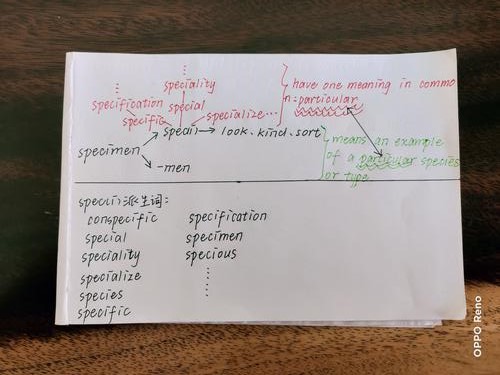 ⋮
speciality
specification special
specific specialize...
have one meaning in commo
n: particular
speci(i) → look. kind. sort
specimen
-men
means an example
of a particular species
or type.
spec(i)派生词:
conspecific specification
special specimen
speciality specious
specialize
species
specific
OPPO Reno